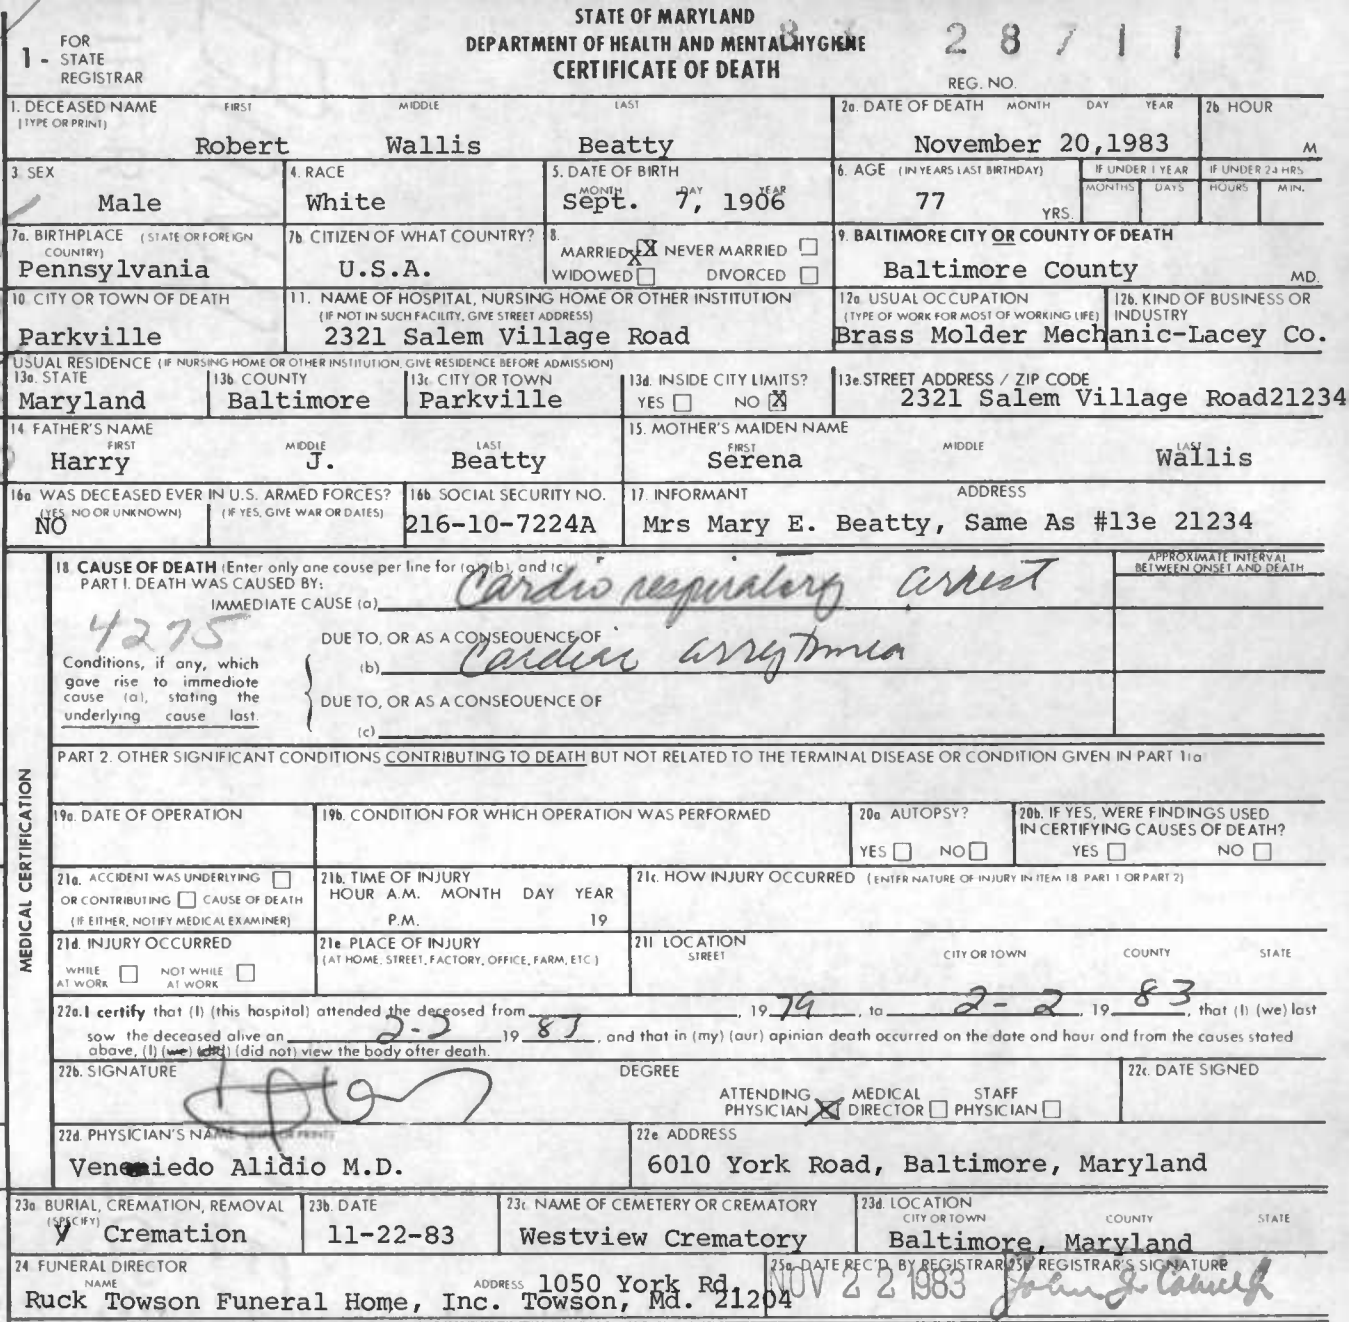 STATE OF MARYLAND
DEPARTMENT OF HEALTH AND MENTAL HYGIENE
CERTIFICATE OF DEATH
1 - FOR STATE REGISTRAR
28711
REG. NO.
1. DECEASED NAME FIRST MIDDLE LAST
(TYPE OR PRINT)
Robert Wallis Beatty
2a. DATE OF DEATH MONTH DAY YEAR
November 20,1983
2b HOUR
M
3 SEX
Male
4. RACE
White
5. DATE OF BIRTH
MONTH DAY YEAR
Sept. 7, 1906
6. AGE (IN YEARS LAST BIRTHDAY)
77
YRS.
IF UNDER 1 YEAR
MONTHS DAYS
IF UNDER 24 HRS
HOURS MIN.
7a. BIRTHPLACE (STATE OR FOREIGN
COUNTRY)
Pennsylvania
7b CITIZEN OF WHAT COUNTRY?
U.S.A.
8.
MARRIED X NEVER MARRIED
WIDOWED DIVORCED
9. BALTIMORE CITY OR COUNTY OF DEATH
Baltimore County MD.
10 CITY OR TOWN OF DEATH
Parkville
11. NAME OF HOSPITAL, NURSING HOME OR OTHER INSTITUTION
(IF NOT IN SUCH FACILITY, GIVE STREET ADDRESS)
2321 Salem Village Road
12a USUAL OCCUPATION
(TYPE OF WORK FOR MOST OF WORKING LIFE)
12b. KIND OF BUSINESS OR
INDUSTRY
Brass Molder Mechanic-Lacey Co.
USUAL RESIDENCE (IF NURSING HOME OR OTHER INSTITUTION, GIVE RESIDENCE BEFORE ADMISSION)
13a. STATE
Maryland
13b COUNTY
Baltimore
13c CITY OR TOWN
Parkville
13d. INSIDE CITY LIMITS?
YES NO X
13e. STREET ADDRESS / ZIP CODE
2321 Salem Village Road21234
14 FATHER'S NAME
FIRST MIDDLE LAST
Harry J. Beatty
15. MOTHER'S MAIDEN NAME
FIRST MIDDLE LAST
Serena Wallis
16a WAS DECEASED EVER IN U.S. ARMED FORCES?
(YES, NO OR UNKNOWN) (IF YES, GIVE WAR OR DATES)
NO
16b SOCIAL SECURITY NO.
216-10-7224A
17. INFORMANT ADDRESS
Mrs Mary E. Beatty, Same As #13e 21234
MEDICAL CERTIFICATION
18 CAUSE OF DEATH (Enter only one cause per line for (a), (b), and (c)
PART I. DEATH WAS CAUSED BY:
IMMEDIATE CAUSE (a) Cardio respiratory arrest
APPROXIMATE INTERVAL
BETWEEN ONSET AND DEATH
4275
Conditions, if any, which
gave rise to immediate
cause (a), stating the
underlying cause last.
DUE TO, OR AS A CONSEQUENCE OF
(b) Cardiac arrytmia
DUE TO, OR AS A CONSEQUENCE OF
(c)
PART 2. OTHER SIGNIFICANT CONDITIONS CONTRIBUTING TO DEATH BUT NOT RELATED TO THE TERMINAL DISEASE OR CONDITION GIVEN IN PART 1(a
19a. DATE OF OPERATION
19b. CONDITION FOR WHICH OPERATION WAS PERFORMED
20a AUTOPSY?
YES NO
20b. IF YES, WERE FINDINGS USED
IN CERTIFYING CAUSES OF DEATH?
YES NO
21a. ACCIDENT WAS UNDERLYING
OR CONTRIBUTING CAUSE OF DEATH
(IF EITHER, NOTIFY MEDICAL EXAMINER)
21b. TIME OF INJURY
HOUR A.M. MONTH DAY YEAR
P.M. 19
21c. HOW INJURY OCCURRED (ENTER NATURE OF INJURY IN ITEM 18 PART 1 OR PART 2)
21d. INJURY OCCURRED
WHILE AT WORK NOT WHILE AT WORK
21e PLACE OF INJURY
(AT HOME, STREET, FACTORY, OFFICE, FARM, ETC)
21f LOCATION
STREET CITY OR TOWN COUNTY STATE
22a. I certify that (I) (this hospital) attended the deceased from 19 79, to 2-2 19 83, that (I) (we) last
saw the deceased alive on 2-2 19 83, and that in (my) (our) opinion death occurred on the date and hour and from the causes stated
above, (I) (we) (did) (did not) view the body after death.
22b. SIGNATURE
DEGREE
ATTENDING PHYSICIAN X MEDICAL DIRECTOR STAFF PHYSICIAN
22c. DATE SIGNED
22d. PHYSICIAN'S NAME
Alidio M.D.
22e ADDRESS
6010 York Road, Baltimore, Maryland
23a BURIAL, CREMATION, REMOVAL
(SPECIFY)
Cremation
23b. DATE
11-22-83
23c NAME OF CEMETERY OR CREMATORY
Westview Crematory
23d. LOCATION
CITY OR TOWN COUNTY STATE
Baltimore, Maryland
24 FUNERAL DIRECTOR
NAME ADDRESS 1050 York Rd.
Ruck Towson Funeral Home, Inc. Towson, Md. 21204
25a. DATE REC'D. BY REGISTRAR
NOV 22 1983
25b REGISTRAR'S SIGNATURE